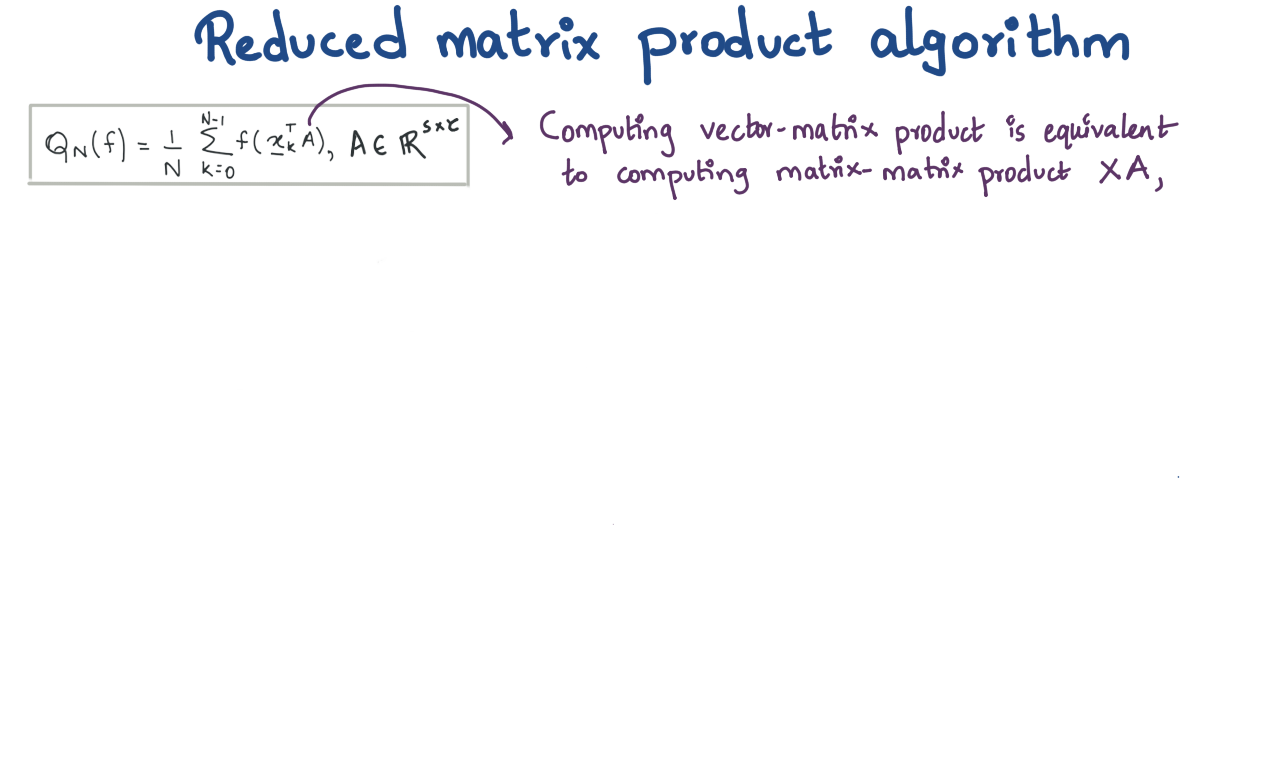 Reduced matrix product algorithm
Q_N(f) = 1/N ∑_{k=0}^{N-1} f(x_k^T A), A ∈ ℝ^{s×τ}
Computing vector-matrix product is equivalent
to computing matrix-matrix product XA,